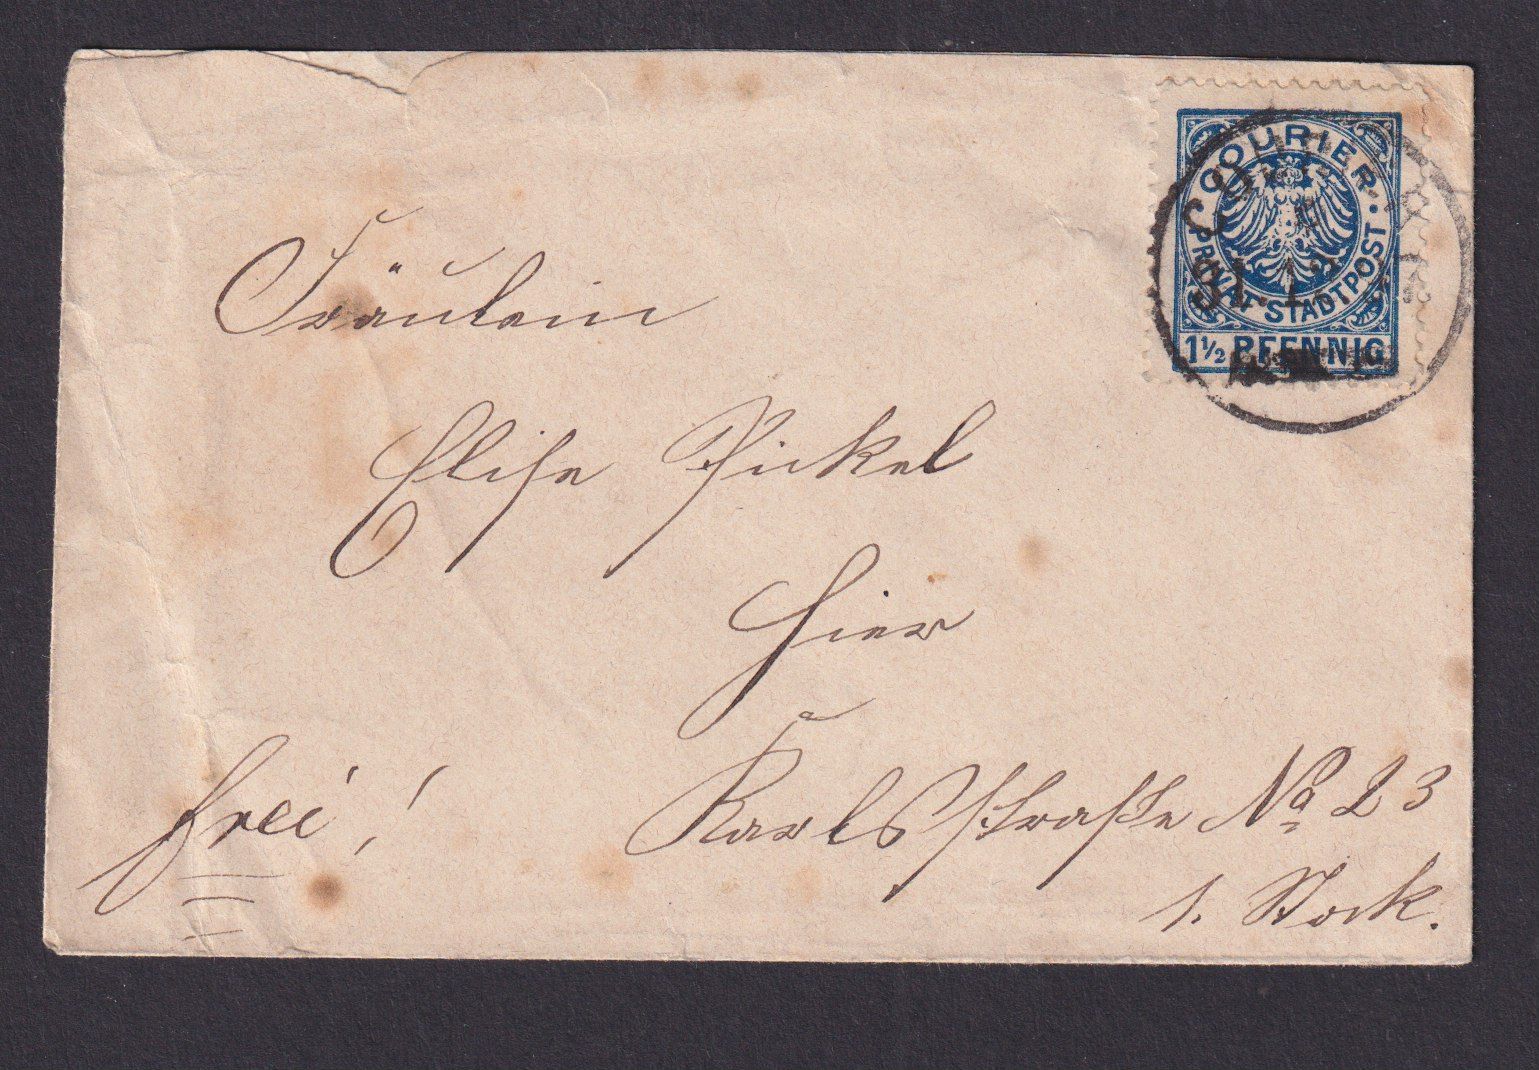 COURIER.
PRIVAT-STADTPOST
1½ PFENNIG
COURIER
31.12.
Fräulein
Elise Pickel
hier
Karlsstraße No 23
1. Stock.
frei!